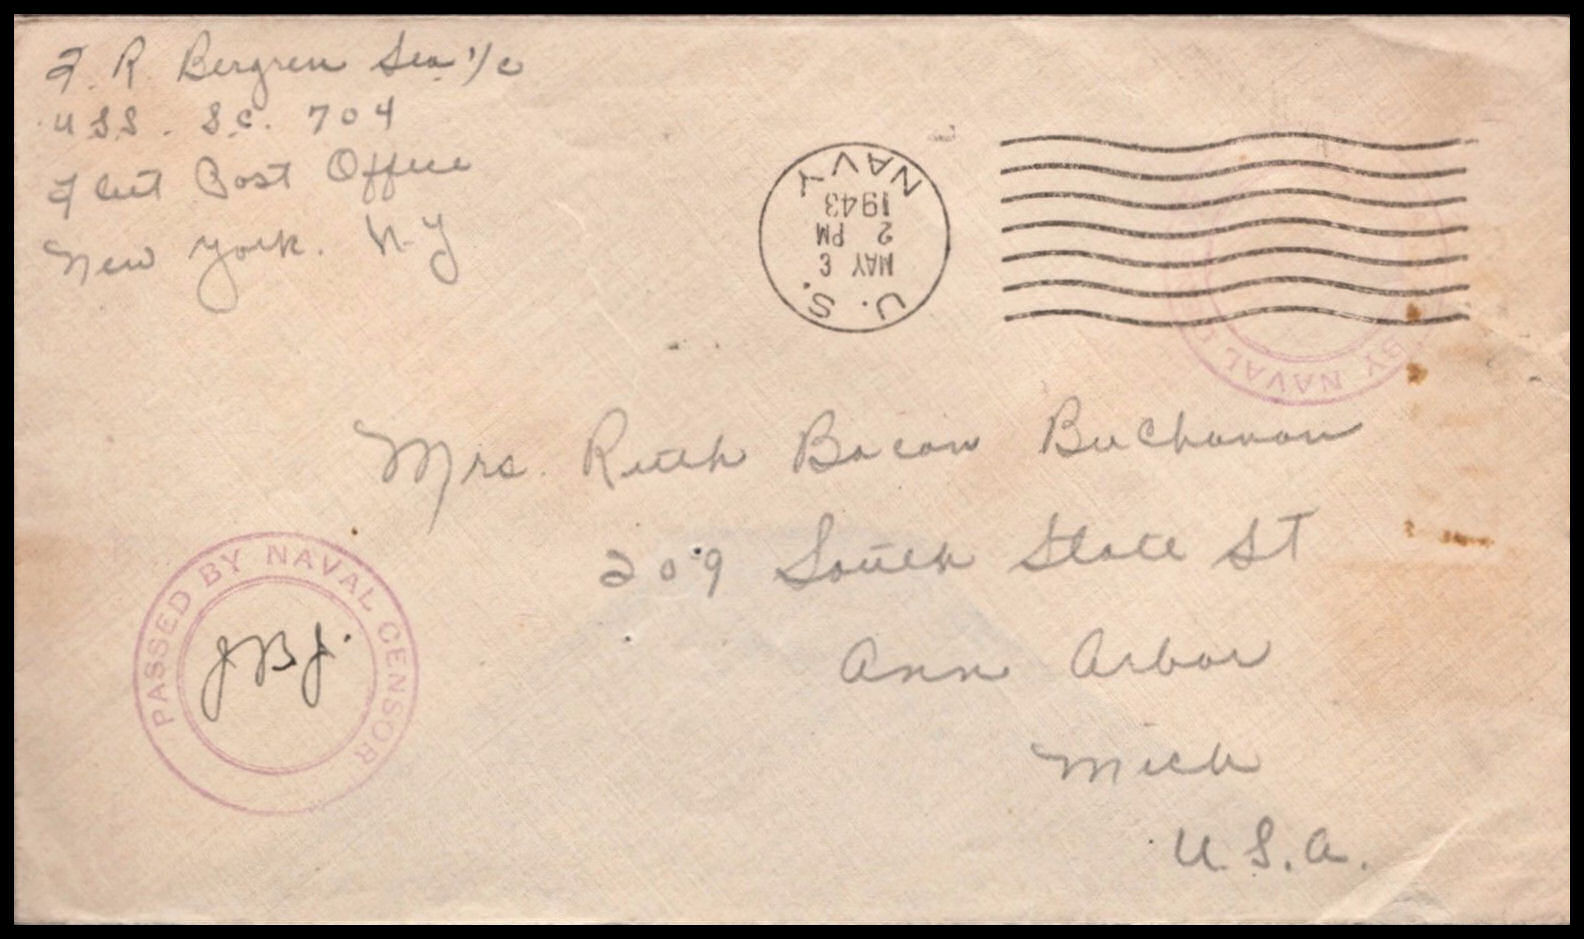 F. R. Bergren Sea 1/c
U.S.S. S.C. 704
Fleet Post Office
New York. N-Y
U. S.
MAY 3
2 PM
1943
NAVY
BY NAVAL
Mrs. Ruth Bacon Buchanan
209 South State St
Ann Arbor
Mich
U.S.A.
PASSED BY NAVAL CENSOR
JBJ.